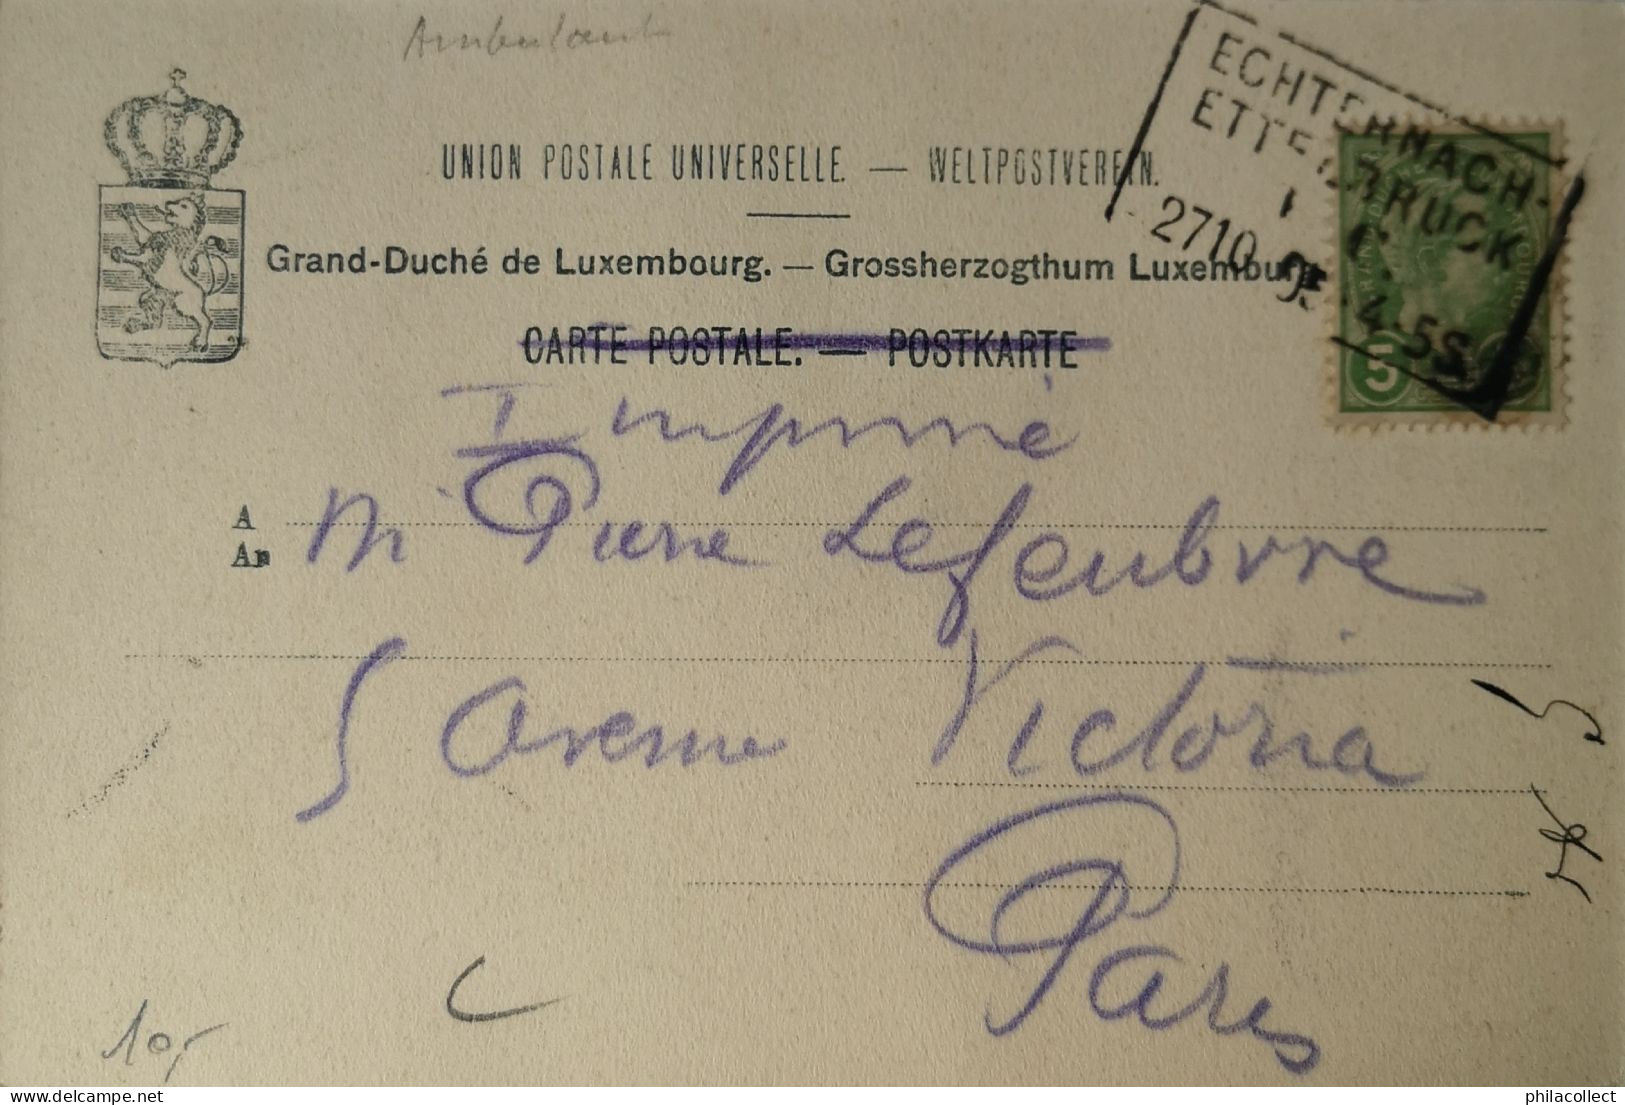 Ambulant
UNION POSTALE UNIVERSELLE. — WELTPOSTVEREIN.
Grand-Duché de Luxembourg. — Grossherzogthum Luxemburg
CARTE POSTALE. — POSTKARTE
ECHTERNACH-
ETTELBRUCK
2710 05 4-5S
5
Imprimé
A
An
M Pierre Lefeubvre
5 Avenue Victoria
Paris
5
10,-
delcampe.net
philacollect